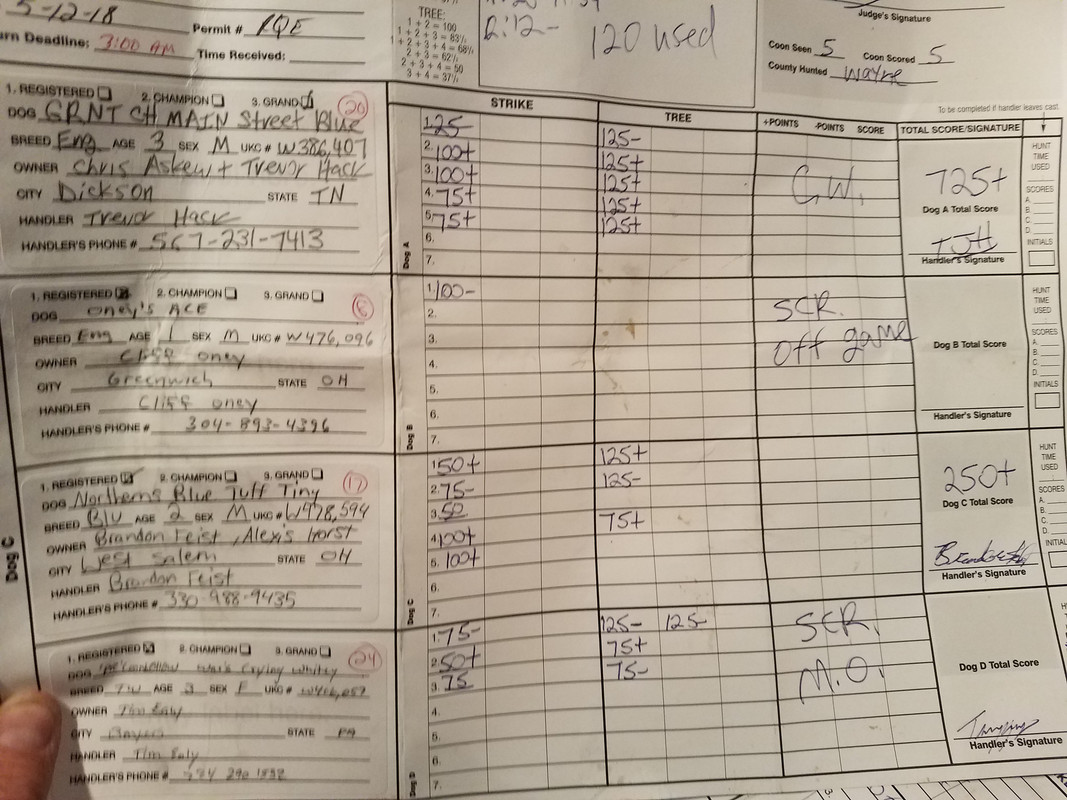 5-12-18
Permit # RQE
Deadline: 3:00 AM
Time Received:
TREE:
1 + 2 = 100
1 + 2 + 3 = 83%
1 + 2 + 3 + 4 = 68%
2 + 3 = 62%
2 + 3 + 4 = 50
3 + 4 = 37%
2:12- 120 used
Judge's Signature
Coon Seen 5 Coon Scored 5
County Hunted Wayne
To be completed if handler leaves cast.
STRIKE TREE +POINTS -POINTS SCORE TOTAL SCORE/SIGNATURE
1. REGISTERED 2. CHAMPION 3. GRAND 20
DOG GRNT CH MAIN Street Blue
BREED Eng AGE 3 SEX M UKC # W386,407
OWNER Chris Askew + Trevor Hack
CITY Dickson STATE TN
HANDLER Trevor Hack
HANDLER'S PHONE # 567-231-7413
Dog A
1. 125 125-
2. 100+ 125+
3. 100+ 125+
4. 75+ 125+
5. 75+ 125+
6.
7.
C.W.
725+
Dog A Total Score
Handler's Signature
HUNT
TIME
USED
SCORES
A.
B.
C.
D.
INITIALS
1. REGISTERED 2. CHAMPION 3. GRAND
DOG Oney's ACE
BREED Eng AGE 1 SEX M UKC # W476,096
OWNER Cliff Oney
CITY Greenwich STATE OH
HANDLER Cliff Oney
HANDLER'S PHONE # 304-893-4396
Dog B
1. 100-
2.
3.
4.
5.
6.
7.
SCR.
Off game
Dog B Total Score
Handler's Signature
HUNT
TIME
USED
SCORES
A.
B.
C.
D.
INITIALS
Dog C
1. REGISTERED 2. CHAMPION 3. GRAND 17
DOG Northerns Blue Tuff Tiny
BREED Blu AGE 2 SEX M UKC # W478,594
OWNER Brandon Feist, Alexis Horst
CITY West Salem STATE OH
HANDLER Brandon Feist
HANDLER'S PHONE # 330-988-9435
Dog C
1. 50+ 125+
2. 75- 125-
3. 50 75+
4. 100+
5. 100+
6.
7.
250+
Dog C Total Score
Handler's Signature
HUNT
TIME
USED
SCORES
A.
B.
C.
D.
INITIAL
1. REGISTERED 2. CHAMPION 3. GRAND 24
DOG Crying Whitey
BREED TW AGE 3 SEX F UKC #
OWNER Tim Ealy
CITY STATE PA
HANDLER Tim Ealy
HANDLER'S PHONE #
Dog D
1. 75- 125- 125-
2. 50+ 75+
3. 75 75-
4.
5.
6.
7.
SCR.
M.O.
Dog D Total Score
Handler's Signature